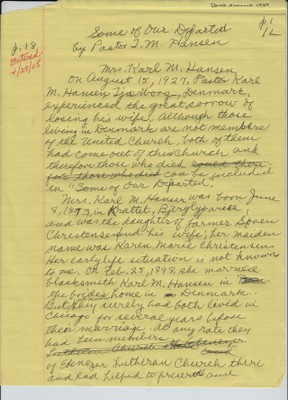 Dansk Almanak 1929
p. 1
p. 18
Entered
4/29/05
Some of Our Departed
by Pastor I. M. Hansen
Mrs. Karl M. Hansen
On August 15, 1927, Pastor Karl
M. Hansen, Tjæreborg, Denmark,
experienced the great sorrow of
losing his wife. Although those
living in Denmark are not members
of the United Church, both of them
had come out of this Church and
therefore those who died could there
fore those who died can be included
in "Some of Our Departed.
Mrs. Karl M. Hansen was born June
8, 1873 in Krattet, Bjergby
and was the daughter of farmer Søren
Christensen and his wife; her maiden
name was Karen Marie Christensen.
Her early life situation is not known
to me. On Feb. 27, 1898 she married
blacksmith Karl M. Hansen in
the home in Denmark.
But they already had both lived in
Chicago for several years before
their marriage. At any rate they
had been members
Lutheran Church
of Ebenezer Lutheran Church there
and had helped to preserve and